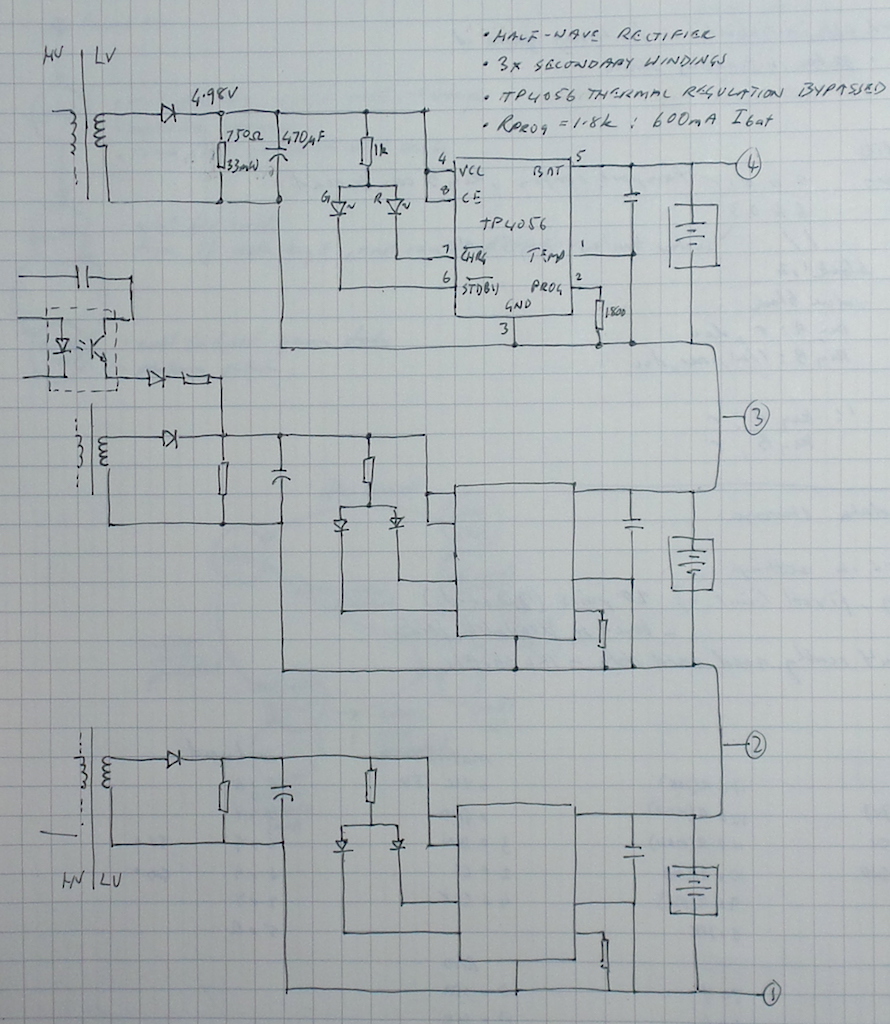 • HALF-WAVE RECTIFIER
HV LV
• 3X SECONDARY WINDINGS
4.98V
• TP4056 THERMAL REGULATION BYPASSED
• RPROG = 1.8k : 600mA Ibat
750Ω 470µF
33mW
1k
4 VCC BAT 5
4
8 CE
G R
TP4056
7 CHRG TEMP 1
6 STDBY PROG 2
GND
1800
3
3
2
HV LV
1